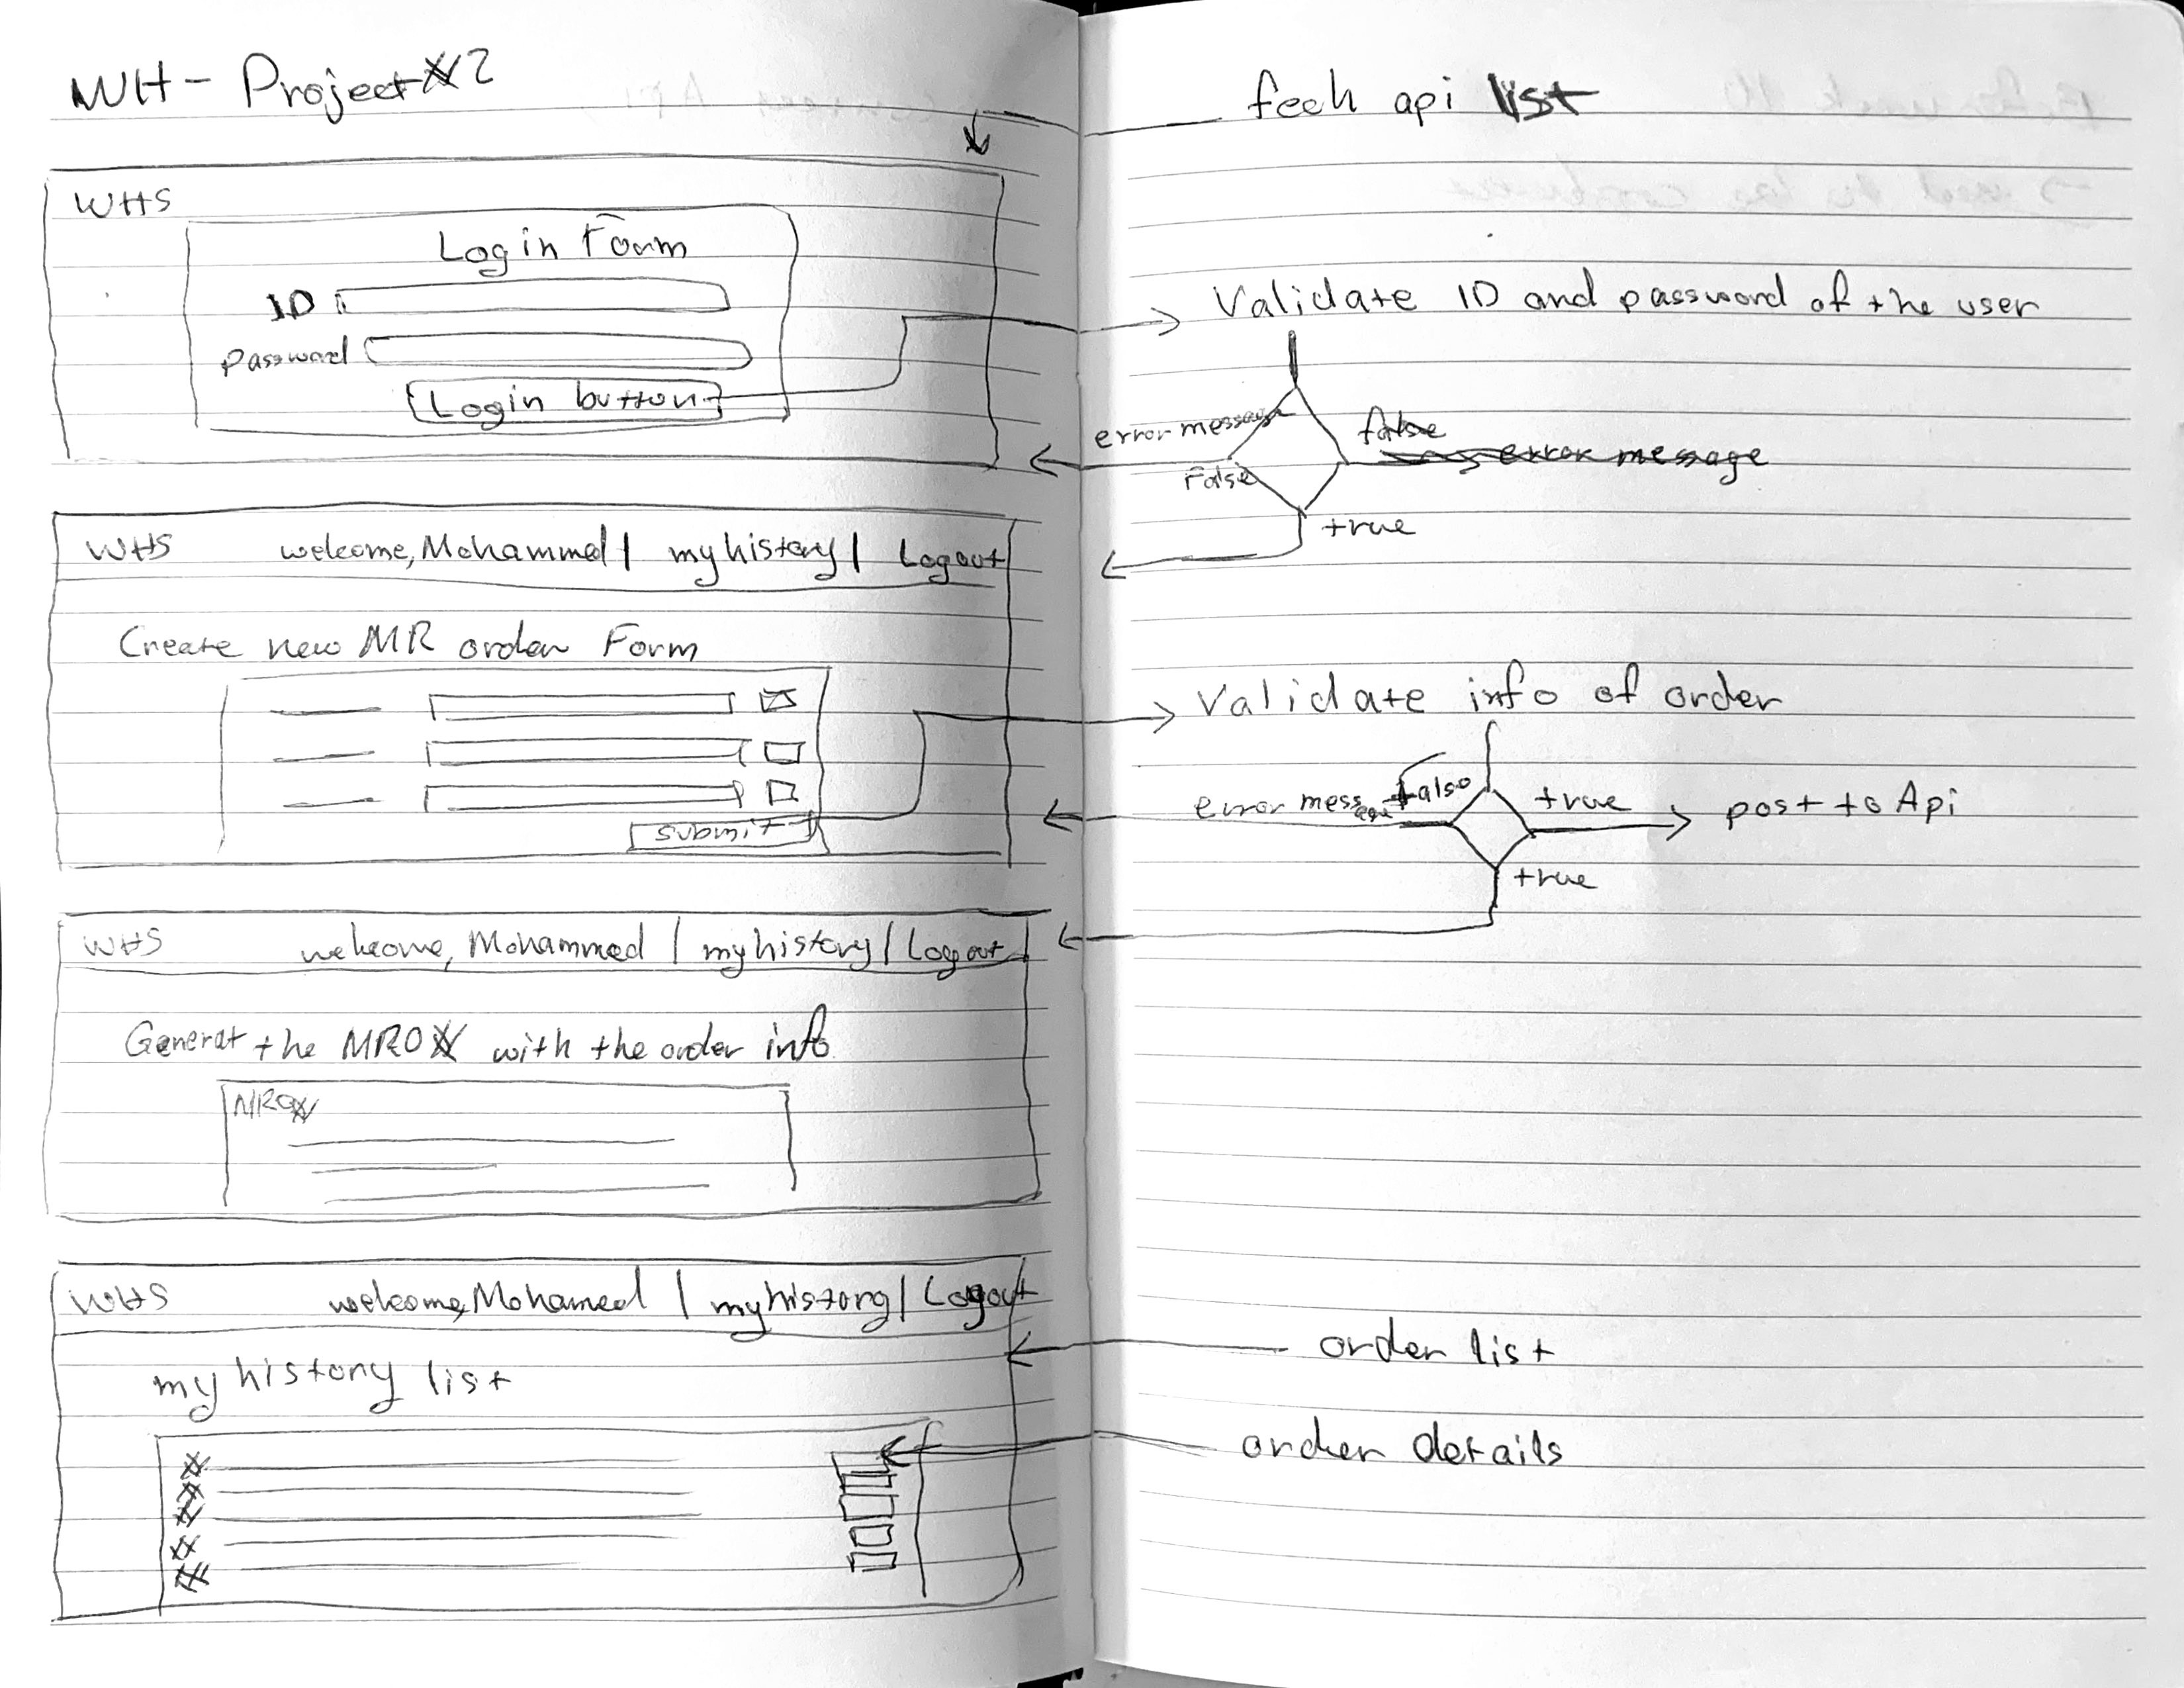 WH- Project #2
WHS
Login Form
ID
Password
Login button
WHS welcome, Mohammed | my history | Logout
Create new MR order Form
submit
WHS welcome, Mohammed | my history | Logout
Generat the MRO# with the order info
MRO#
WHS welcome, Mohamed | my history | Logout
my history list
#
#
#
#
#
fech api list
Validate ID and password of the user
error message
false
error message
False
true
Validate info of order
error message
false
true
post to Api
true
order list
order details